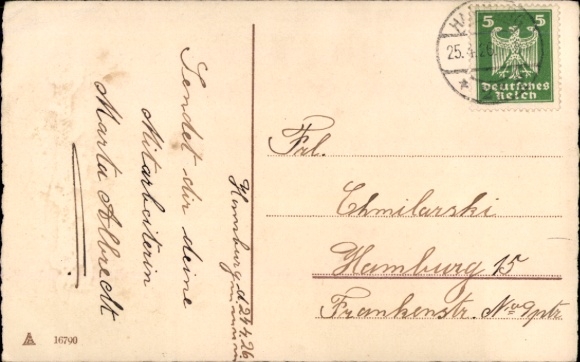 Sendet dir deine
Mitarbeiterin
Marta Albrecht
Hamburg d. 24.4.26.
16790
25.4.26
5 5
Deutsches
Reich
Frl.
Chmilarski
Hamburg 15
Frankenstr. No 9ptr